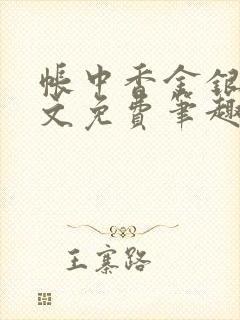 帐中香金银
文免费笔趣
王寨路